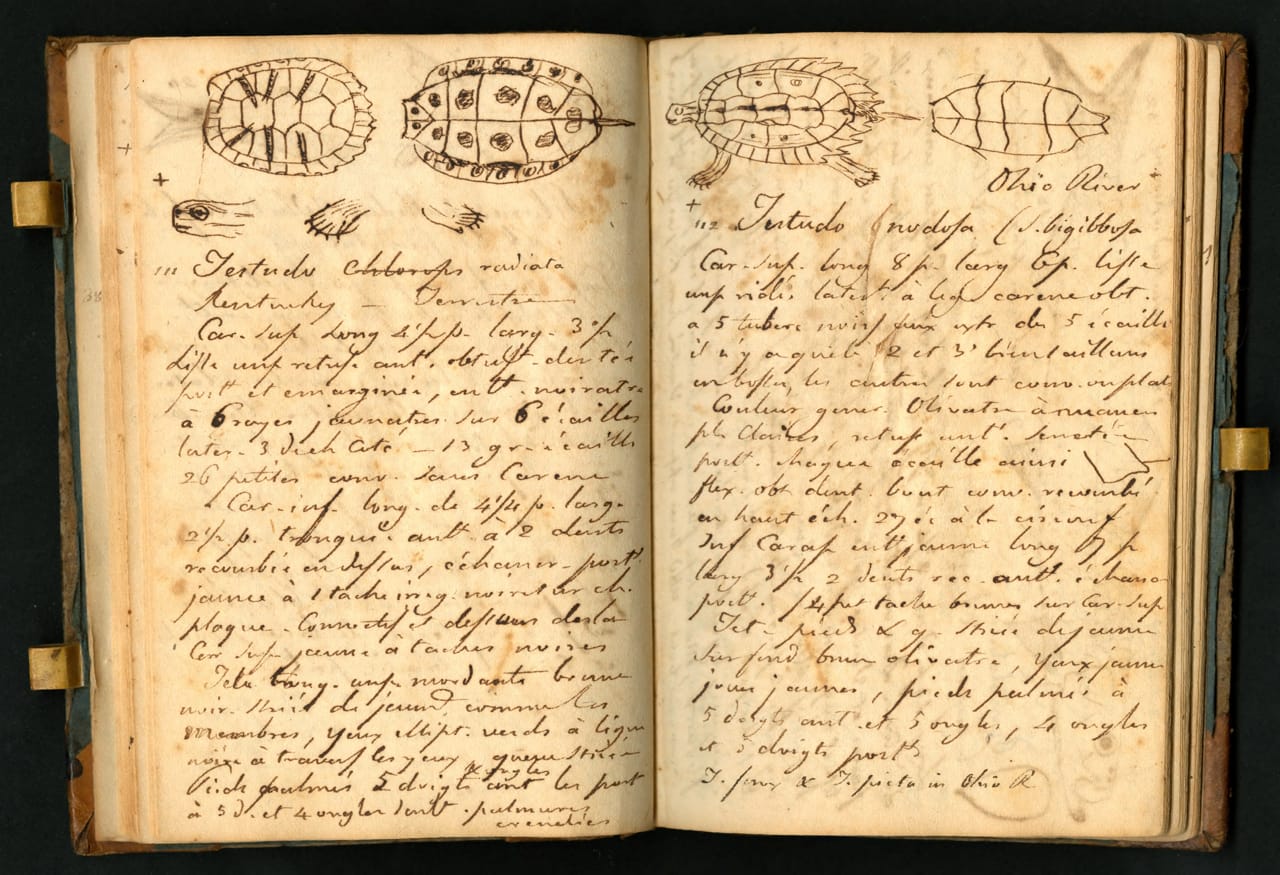 111 Testudo Chlorops radiata
Kentucky — Terrestre
Car. sup long 4½ p. larg. 3½ p
Lisse retuse ant. obtuse
post et emarginée, ent. noiratre
à 6 rayes jaunatres sur 6 écailles
later. 3 de ch coté — 13 gr. écailles
26 petites conv. sans Carene
Car. inf. long. de 4¼ p. larg.
2½ p. tronquée ant à 2 dents
recourbée en dessus, échancr. post.
jaune à 1 tache irreg. noire sur ch.
plaque. Connectif et dessous de la
Car sup jaune à taches noires
Tete mordante brune
noir. striée de jaune comme les
membres, yeux ellipt. verds à ligne
noire à travers les yeux queue striée
& ongles
Pieds palmés 5 doigts ant les post
à 5 d. et 4 ongles dont palmures
crenelées
Ohio River
112 Testudo nodosa (s. bigibbosa
Car. sup. long 8 p. larg 6 p. lisse
carene obt.
a 5 tuberc noirs aux extr des 5 écailles
il n'y a que le 2 et 3e bien saillans
en bosse, les autres sont conv. ou plat
Couleur gener. Olivatre à nuances
pl. Claires, retuse ant. serretée
post. chaque écaille ainsi
flex. obt dent. bout conv. recourbé
en haut éch. 27 éc à la circonf
Inf Carap ent jaune long 7 p
larg 3½ 2 dents rec. ant. échancr
post. 4 pet tache brunes sur Car. sup
Tete pieds & q. striée de jaune
sur fond brun olivatre, yeux jaune
joues jaunes, pieds palmés à
5 doigts ant. et 5 ongles, 4 ongles
et 5 doigts post
T. & T. picta in Ohio R